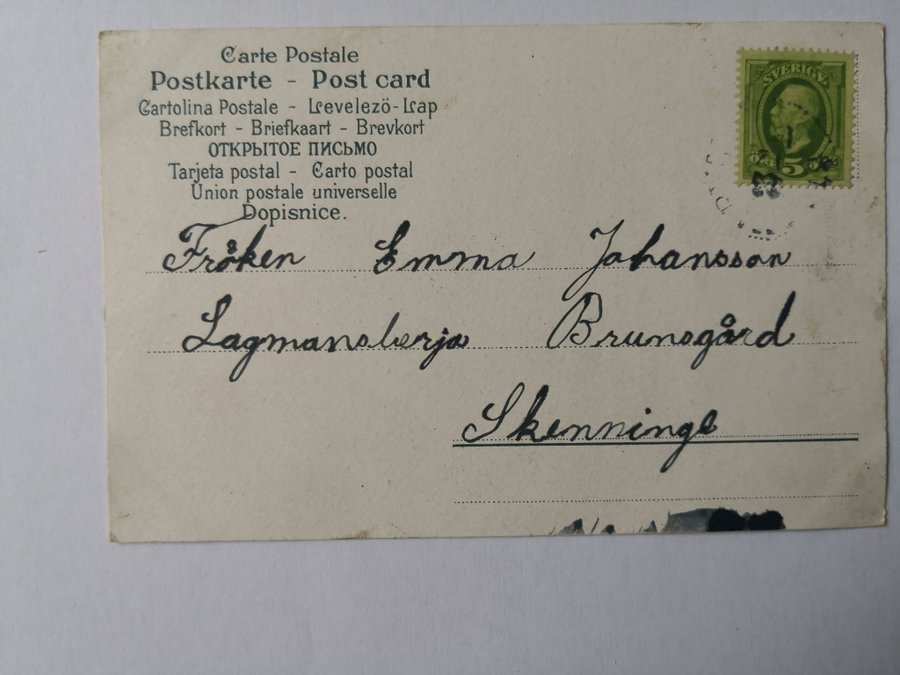 Carte Postale
Postkarte - Post card
Cartolina Postale - Levelezö-Lap
Brefkort - Briefkaart - Brevkort
ОТКРЫТОЕ ПИСЬМО
Tarjeta postal - Carto postal
Union postale universelle
Dopisnice.
SVERIGE
5
Fröken Emma Johansson
Lagmansberja Brunsgård
Skenninge